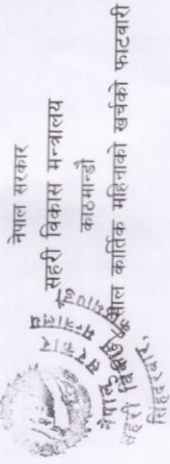 नेपाल सरकार
सहरी विकास मन्त्रालय
काठमाण्डौ
साल कार्तिक महिनाको खर्चको फाटवारी
नेपाल सरकार
सहरी विकास मन्त्रालय
सिंहदरवार,